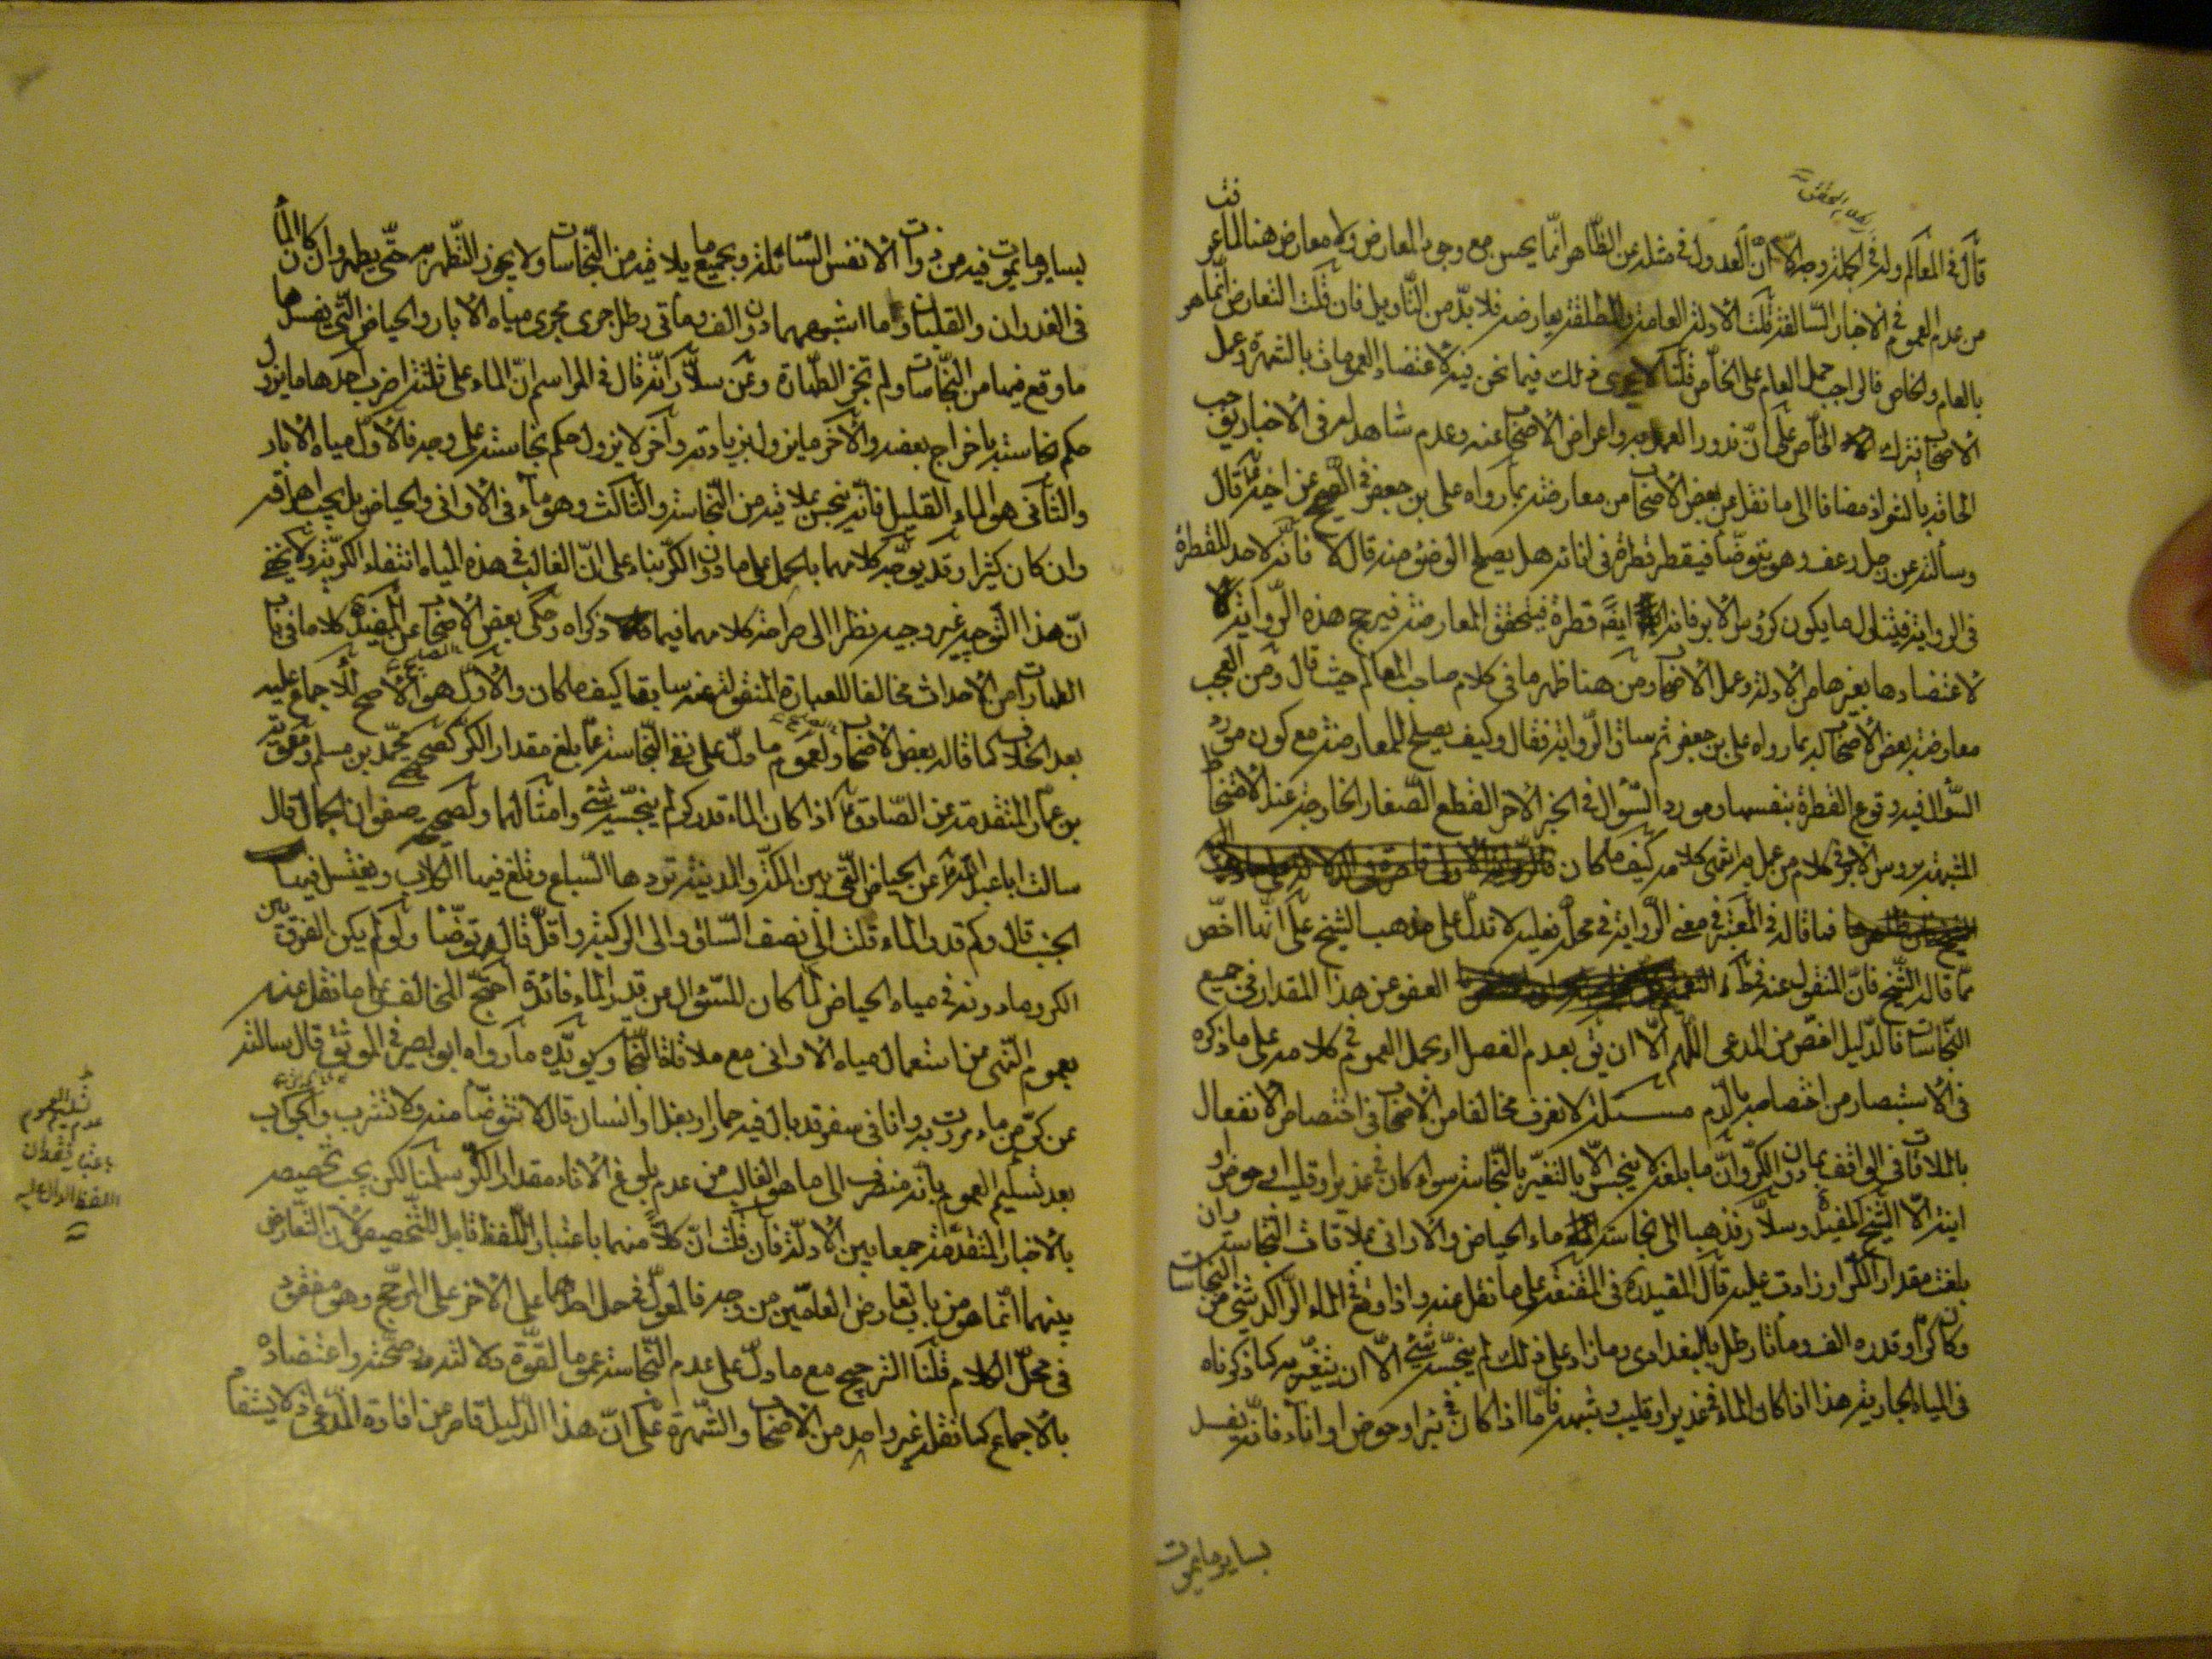 قال في المعالم وله في الجملة وجه الا ان العدول في مثله عن الظاهر انما يحسن مع وجود المعارض ولا معارض هنا لما عرفت
من عدم العموم في الاخبار السالفة قلت الادلة العامة والمطلقة يعارضه فلا بد من التاويل فان قلت التعارض انما هو
بالعام والخاص فالواجب حمل العام على الخاص قلنا لا يجري ذلك فيما نحن فيه لاعتضاد العمومات بالشهرة وعمل
الاصحاب بترك الخاص على ان ندور العمل به واعراض الاصحاب عنه وعدم شاهد له في الاخبار يوجب
الحاقه بالشواذ مضافا الى ما نقل عن بعض الاصحاب من معارضته بما رواه علي بن جعفر في الصحيح عن اخيه قال
وسألته عن رجل رعف وهو يتوضأ فيقطر قطرة في انائه هل يصلح الوضوء منه قال لا فانه لا حد للقطرة
في الرواية فيتناول ما يكون كرؤس الابر فانه ايضا قطرة فيتحقق المعارضة فيرجح هذه الرواية
لاعتضادها بغيرها من الادلة وعمل الاصحاب ومن هنا ظهر ما في كلام صاحب المعالم حيث قال ومن العجب
معارضة بعض الاصحاب له بما رواه علي بن جعفر ثم ساق الرواية فقال وكيف يصلح للمعارضة مع كون مورد
السؤال فيه وقوع القطرة بنفسها ومورد السؤال في الخبر الاخر القطع الصغار الخارجة عند الامتخاط
المشبهة برؤس الابر في كلام من عمل به انتهى كلامه كيف ما كان
فما قاله في المعتبر في معنى الرواية في محله فعليه لا تدل على مذهب الشيخ على انها اخص
مما قاله الشيخ فان المنقول عنه العفو عن هذا المقدار في جميع
النجاسات فالدليل اخص من المدعى اللهم الا ان يق بعدم الفصل او يحمل العموم في كلامه على ما ذكره
في الاستبصار من اختصاصه بالدم مسئلة لا نعرف مخالفا من الاصحاب في اختصاص الانفعال
بالملاقات في الواقف بما دون الكر وان ما بلغه لا ينجس الا بالتغير بالنجاسة سواء كان في غدير او قليب او حوض او
انية الا الشيخ المفيد وسلار فذهبا الى نجاسة ماء الحياض والاواني بملاقات النجاسة وان
بلغت مقدار الكر او زادت عليه قال المفيد في المقنعة على ما نقل عنه واذا وقع في الماء الراكد شئ من النجاسات
وكان كرا وقدره الف ومائتا رطل بالبغدادي وما زاد على ذلك لم ينجسه شئ الا ان يتغير به كما ذكرناه
في المياه الجارية هذا اذا كان الماء في غدير او قليب وشبهه فاما اذا كان في بئر او حوض او اناء فانه يفسد
بساير ما يموت
بساير ما يموت فيه من ذوات الانفس السائلة وبجميع ما يلاقيه من النجاسات ولا يجوز التطهر به حتى يطهر وان كان الماء
في الغدران والقلبان وما اشبههما دون الف ومائتي رطل جرى مجرى مياه الابار والحياض التي يفسدها
ما وقع فيها من النجاسات ولم تجز الطهارة وعن سلار انه قال في المراسم ان الماء على ثلثة اضرب احدها ما يزول
حكم نجاسته باخراج بعضه والآخر ما يزول بزيادته وآخر لا يزول حكم نجاسته على وجه فالاول مياه الابار
والثاني هو الماء القليل فانه ينجس بما لاقيه من النجاسة والثالث وهو ماء في الاواني والحياض بل يجب اهراقه
وان كان كثيرا وقد يوجه كلامهما بالحمل على ما دون الكر بناء على ان الغالب في هذه المياه انتفاء الكرية ولا يخفى
ان هذا التوجيه غير وجيه نظرا الى صراحة كلامهما فيما ذكراه وحكى بعض الاصحاب عن المفيد كلاما في باب
الطهارات من الاحداث مخالفا للعبارة المنقولة عنه سابقا كيف ما كان والاول هو الاصح للاجماع عليه
بعد الخلاف كما قاله بعض الاصحاب ولعموم ما دل على نفي النجاسة عما بلغ مقدار الكر كصحيح محمد بن مسلم ومعوية
بن عمار المتقدمة عن الصادق اذا كان الماء قدر كر لم ينجسه شئ وامثالها ولصحيح صفوان الجمال قال
سالت ابا عبد الله عن الحياض التي بين المكة والمدينة تردها السباع وتلغ فيها الكلاب ويغتسل فيها
الجنب قال وكم قدر الماء قلت الى نصف الساق والى الركبة واقل قال توضأ ولو لم يكن الفرق بين
الكر وما دونه في مياه الحياض لما كان للسؤال عن قدر الماء فائدة احتج المخالف على ما نقل عنه
بعموم النهي من استعمال مياه الاواني مع ملاقاة النجاسة ويؤيده ما رواه ابو بصير في الموثق قال سالته
عن كر من ماء مررت به وانا في سفر قد بال فيه حمار او بغل او انسان قال لا تتوضأ منه ولا تشرب والجواب
بعد تسليم العموم بانه منصرف الى ما هو الغالب من عدم بلوغ الاناء مقدار الكر سلمنا لكن يجب تخصيصه
بالاخبار المتقدمة جمعا بين الادلة فان قلت ان كلا منهما باعتبار اللفظ قابل للتخصيص لان التعارض
بينهما انما هو من باب تعارض العامين من وجه فالمعول في حمل احدهما على الاخر على المرجح وهو مفقود
في محل الكلام قلنا الترجيح مع ما دل على عدم النجاسة عموما لقوة دلالته صحته واعتضاده
بالاجماع كما نقله غير واحد من الاصحاب والشهرة على ان هذا الدليل قاصر عن افادة المدعى اذ لا يستفاد
عدم
باعتبار فقدان
اللفظ الدال عليه